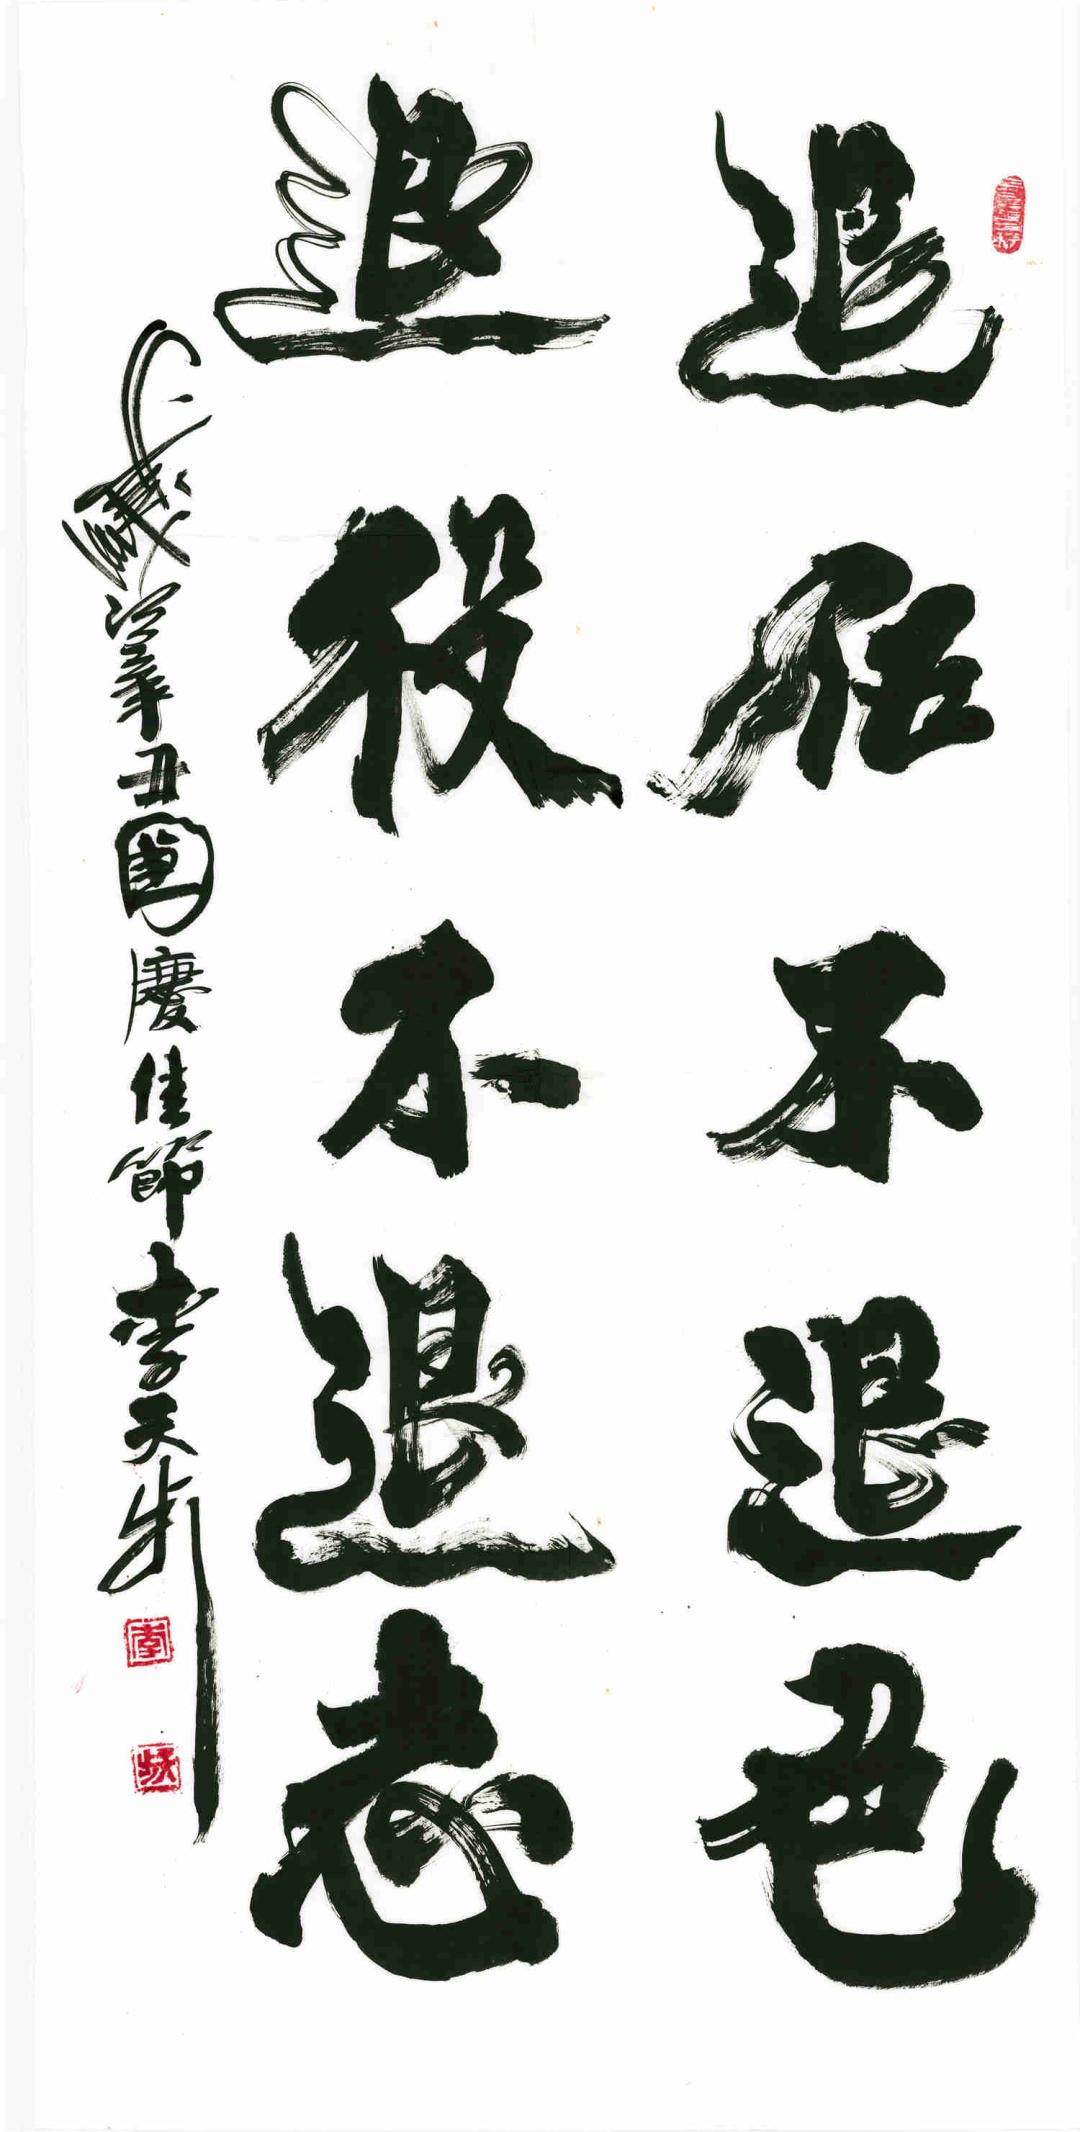 退伍不退色
退役不退志
歲次辛丑國慶佳節李天